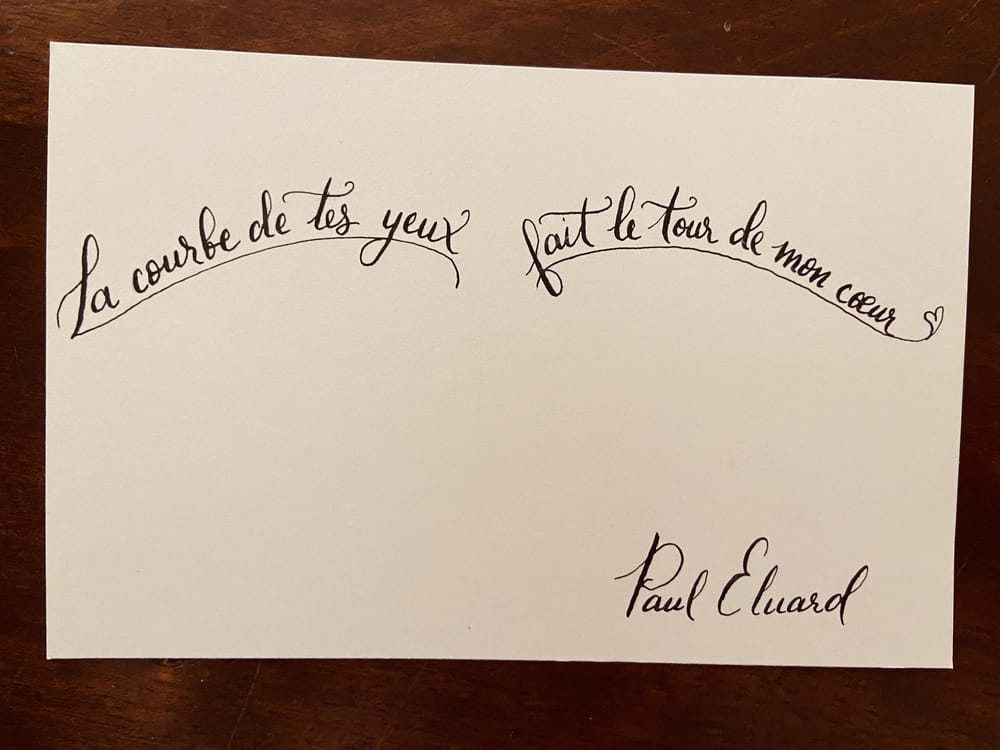 La courbe de tes yeux fait le tour de mon cœur
Paul Eluard